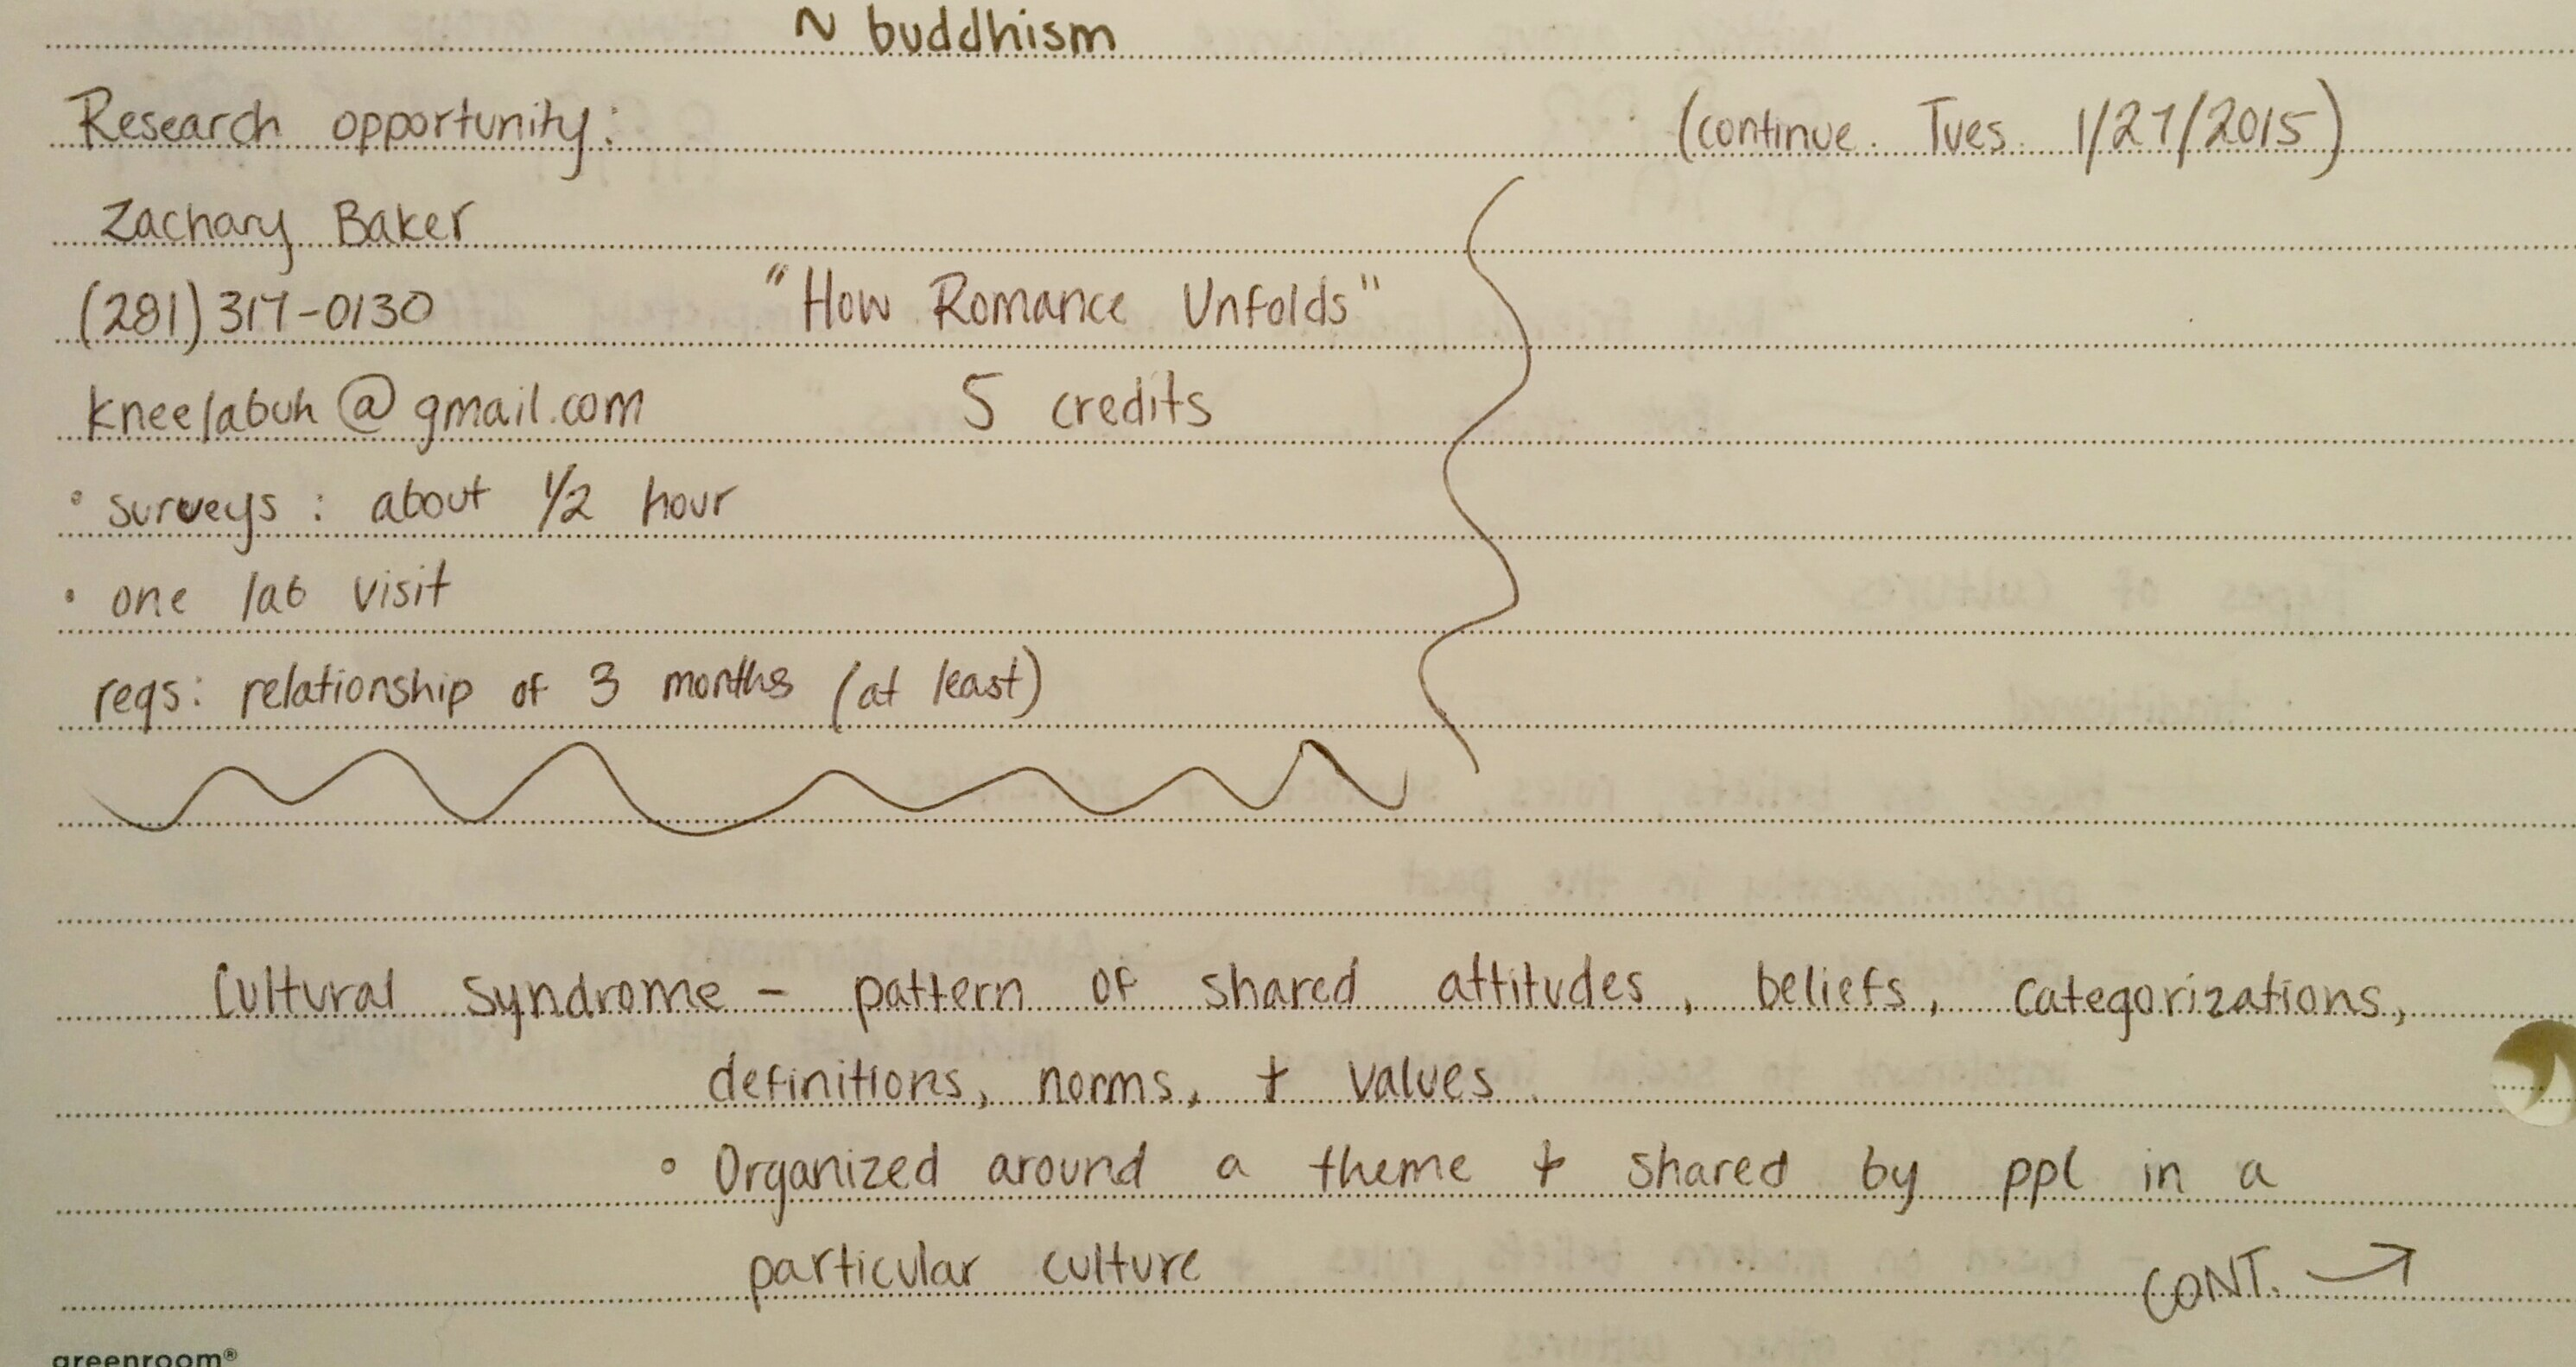 ~ buddhism
Research opportunity:
(continue Tues 1/27/2015)
Zachary Baker
(281) 317-0130
"How Romance Unfolds"
kneelabuh@gmail.com
5 credits
• surveys : about 1/2 hour
• one lab visit
reqs: relationship of 3 months (at least)
Cultural Syndrome - pattern of shared attitudes, beliefs, categorizations,
definitions, norms, + values
• Organized around a theme + shared by ppl in a
particular culture
CONT. →
greenroom®